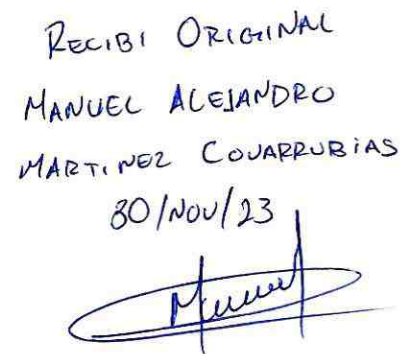 RECIBI ORIGINAL
MANUEL ALEJANDRO
MARTINEZ COVARRUBIAS
30/NOV/23
Manuel